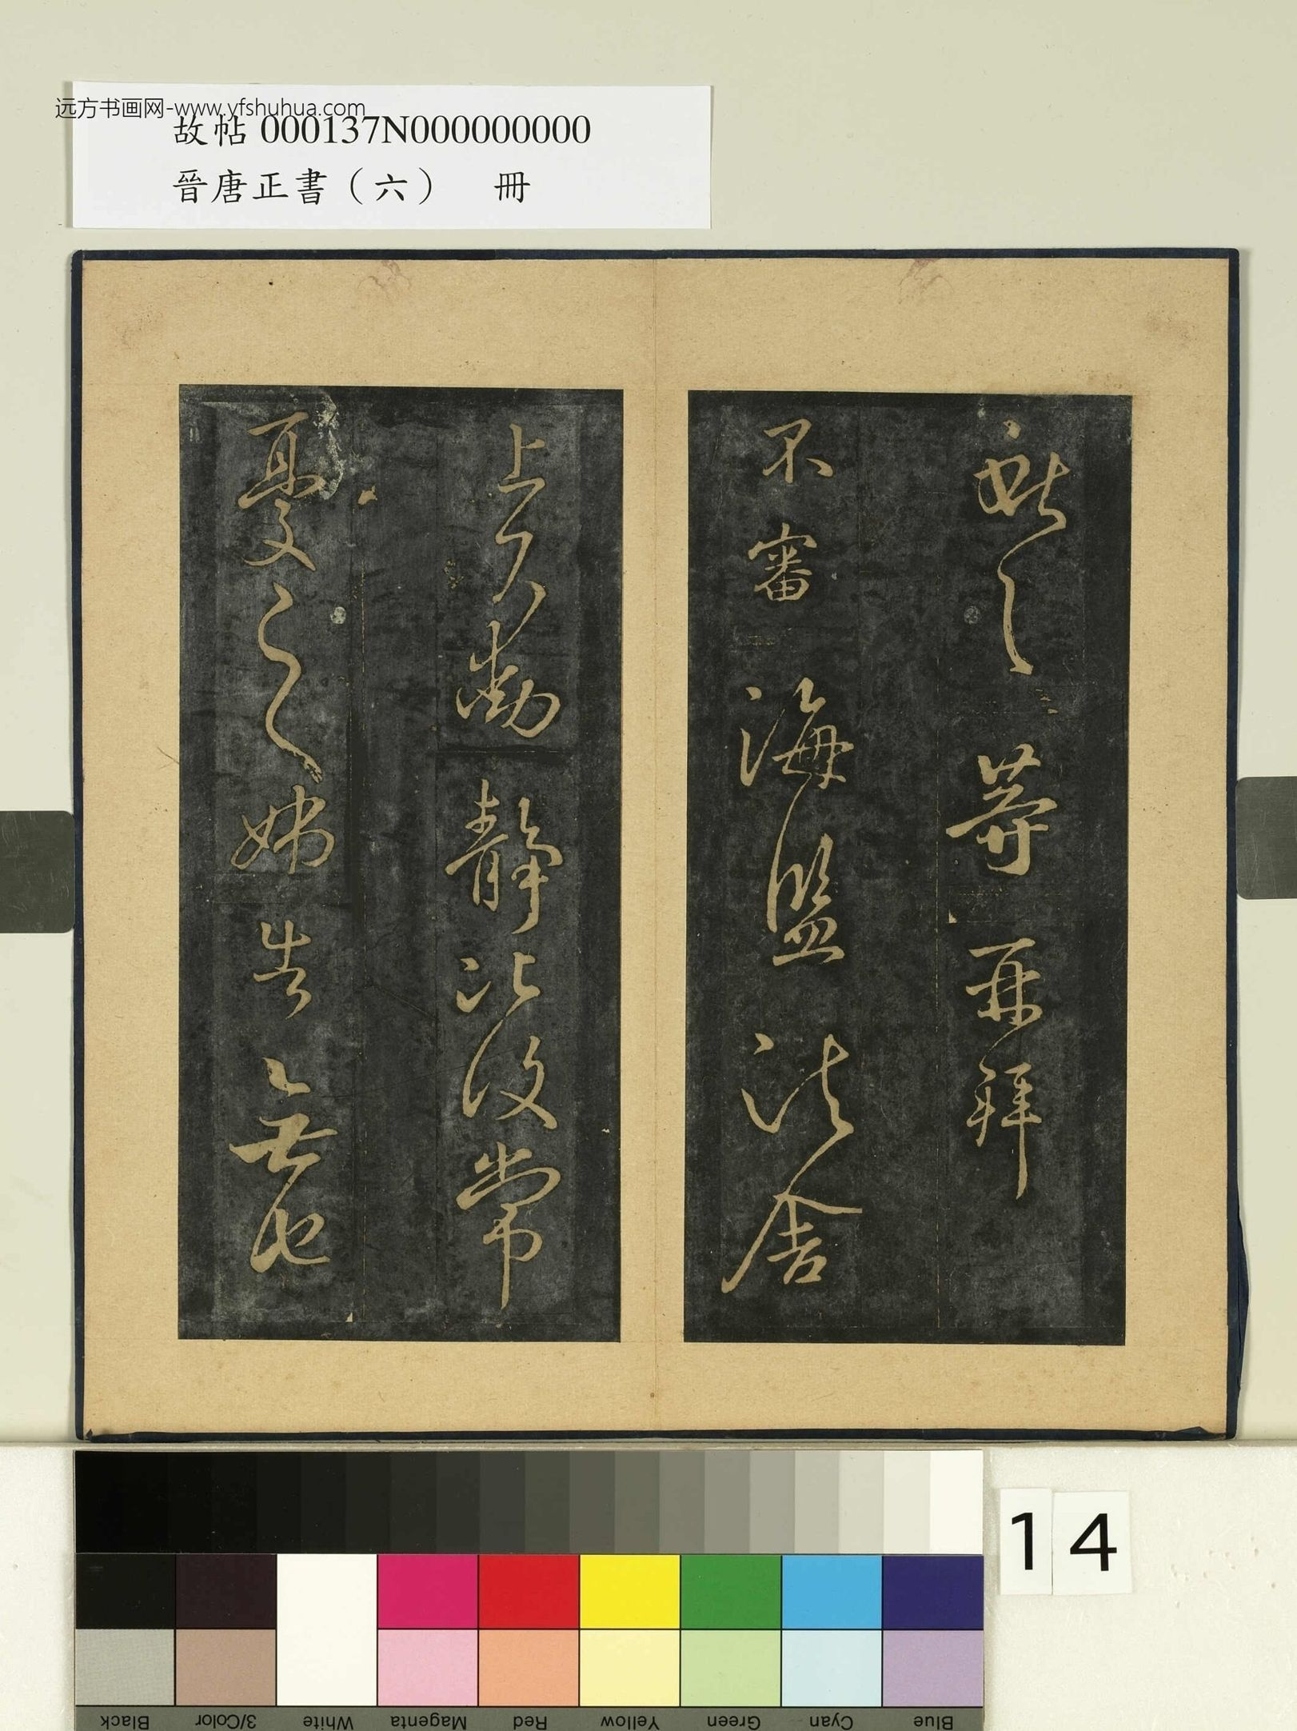 远方书画网-www.yfshuhua.com
故帖 000137N000000000
晉唐正書（六） 冊
獻之等再拜
不審海鹽諸舍
上下動靜比復常
憂之姊告無他
14
Black
3/Color
White
Magenta
Red
Yellow
Green
Cyan
Blue